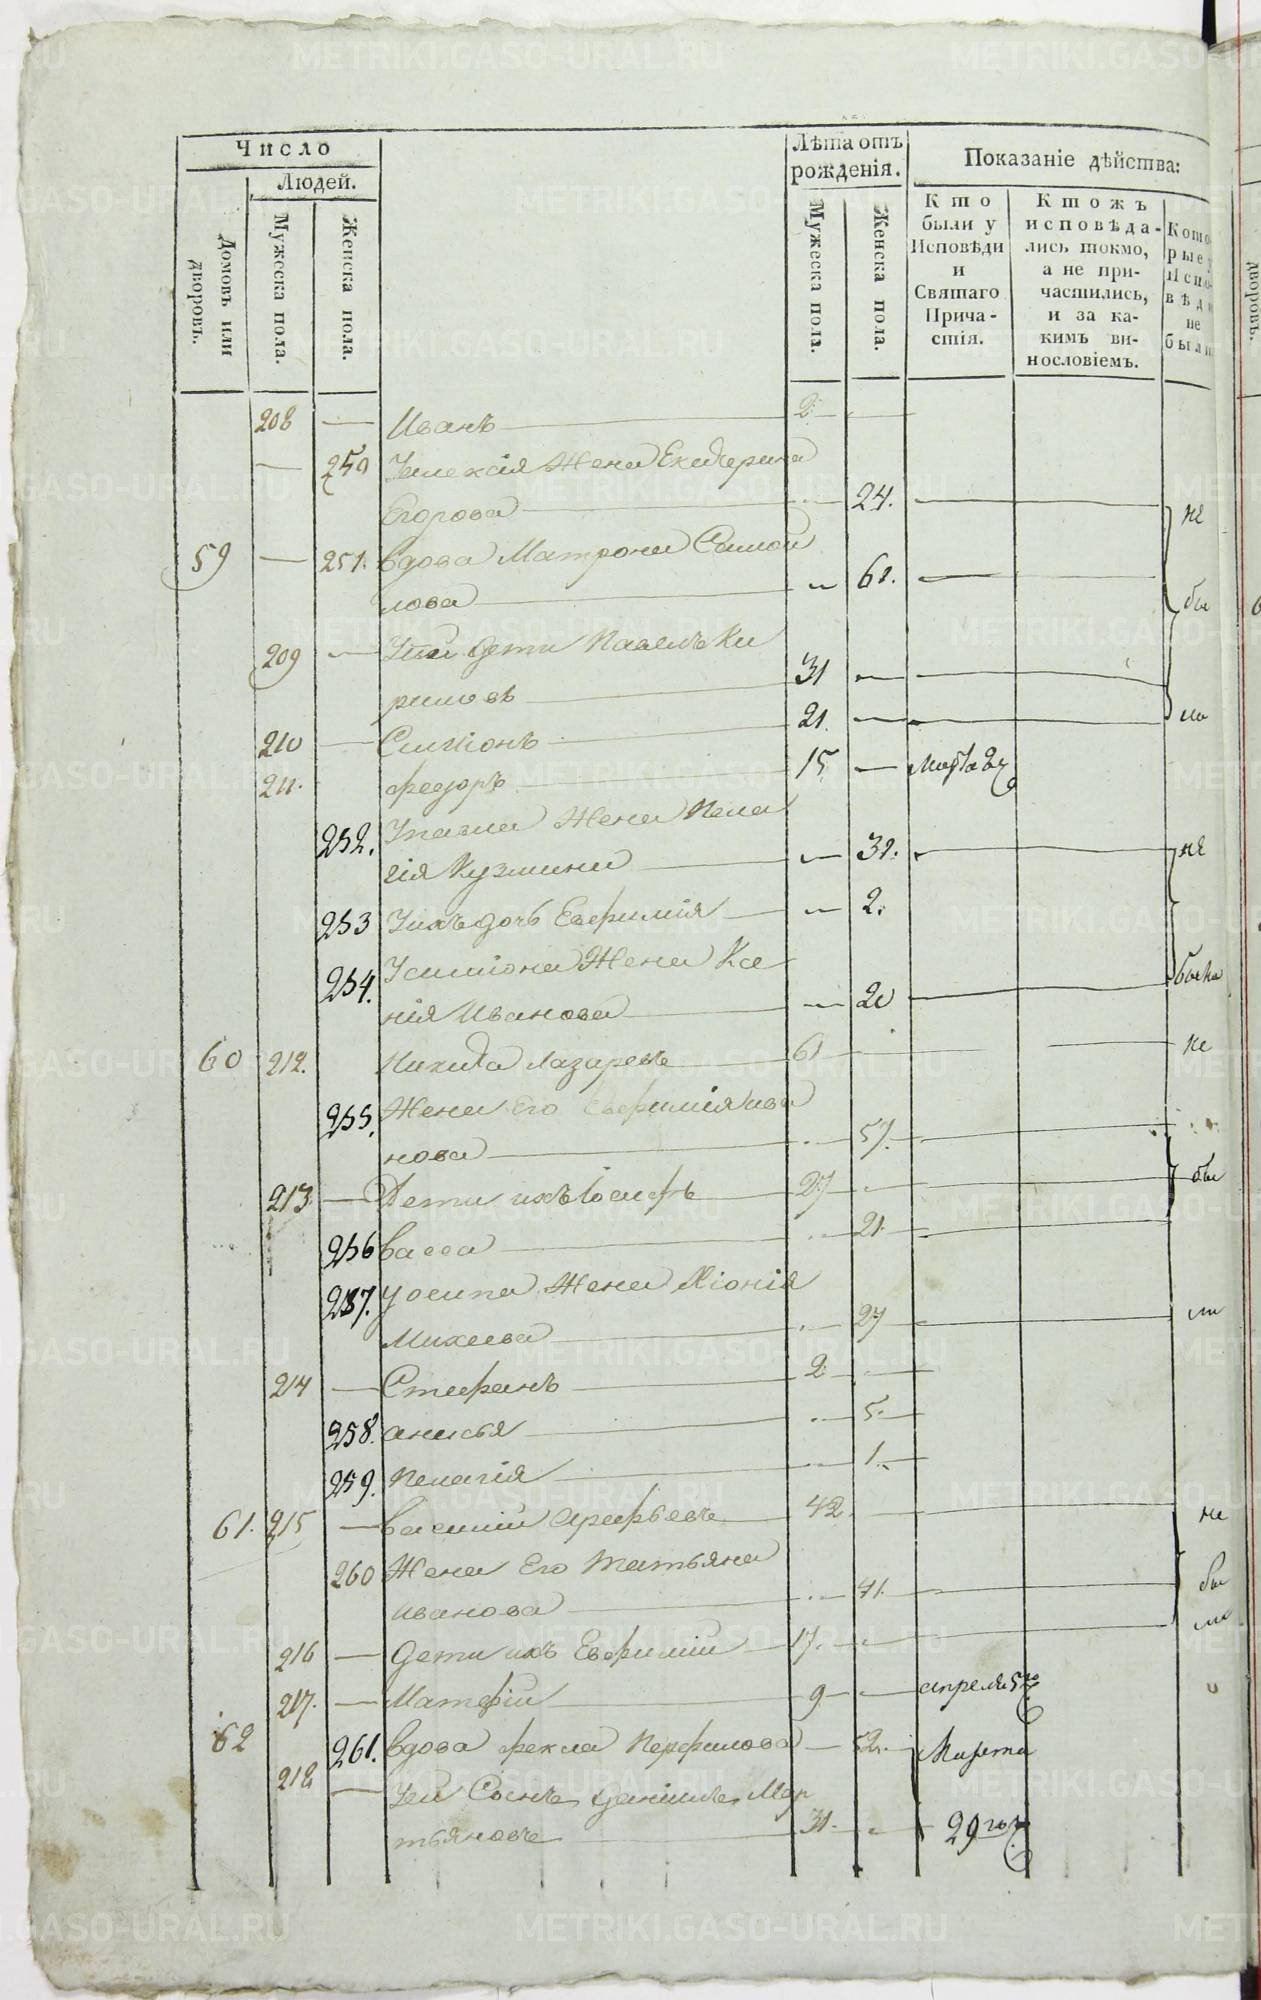 Число
Людей.
Домовъ или дворовъ.
Мужеска пола.
Женска пола.
Лѣта отъ рожденія.
Мужеска пола.
Женска пола.
Показаніе дѣйства:
Кто были у Исповѣди и Святаго Причастія.
Ктожъ исповѣдались токмо, а не причастились, и за какимъ винословіемъ.
Которые у Исповѣди не были
208 — Иванъ — 2 —
— 250 Уалексія Жена Екатерина
Егорова — 24. — не
59 — 251. вдова Матрона Самой
лова — 61. — бы
209 — Уней дети Павелъ Ки
риловъ — 31 —
210 — Симіонъ — 21. — ли
211. федоръ — 15 — марта 2
252. Упавла Жена Пела
гія Кузмина — 31. — не
253 Ухъ дочь Евфимія — 2.
254. Усимиона Жена Ксе
нія Иванова — 20 — были
60 212. Никита Лазаревъ — 61 — не
255. Жена Его Евфимія ива
нова — 57. —
213 — Дети ихъ Іосифъ — 27 — бы
256 васса — 21. —
257. Уосипа Жена Хіонія
Михеева — 27 — ли
214 — Стефанъ — 2 —
258. анисья — 5. —
259. Пелагія — 1. —
61. 215 — василий арефьевъ — 42 — не
260 Жена Его Татьяна
иванова — 41. — бы
216 — дети ихъ Евфимій — 17. — ли
217. — Матфій — 9 — апреля 5го
62 261. вдова фекла Перфилова — 52. — Марта
218 — Уей Сынъ Даниилъ Мар
тьяновъ — 31. — 29го